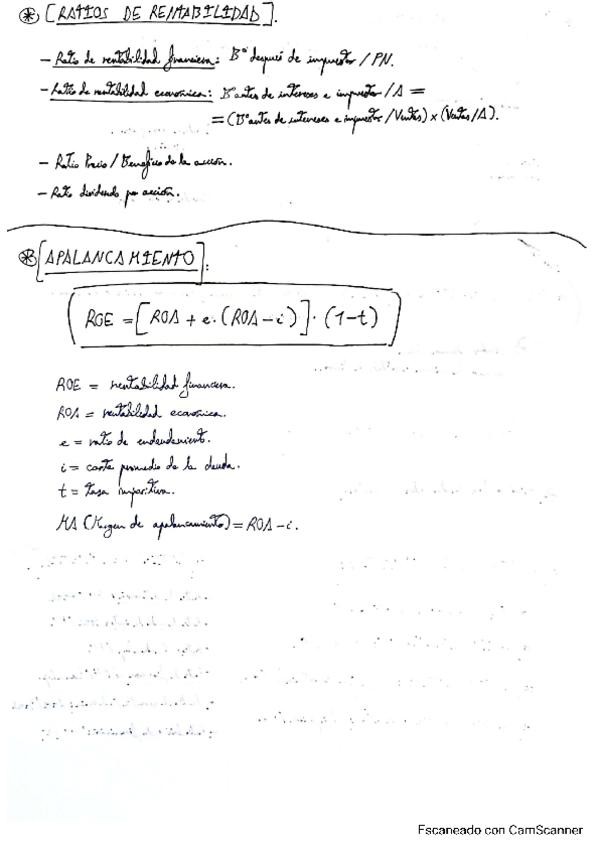 ⊛ [RATIOS DE RENTABILIDAD].
- Ratio de rentabilidad financiera: Bº después de impuestos / PN.
- Ratio de rentabilidad económica: Bº antes de intereses e impuestos / A =
= (Bº antes de intereses e impuestos / Ventas) x (Ventas / A).
- Ratio Precio / Beneficio de la acción.
- Rato dividendo por acción.
⊛ [APALANCAMIENTO].
ROE = [ROA + e · (ROA - i)] · (1 - t)
ROE = rentabilidad financiera.
ROA = rentabilidad económica.
e = ratio de endeudamiento.
i = coste promedio de la deuda.
t = tasa impositiva.
MA (Margen de apalancamiento) = ROA - i.
Escaneado con CamScanner